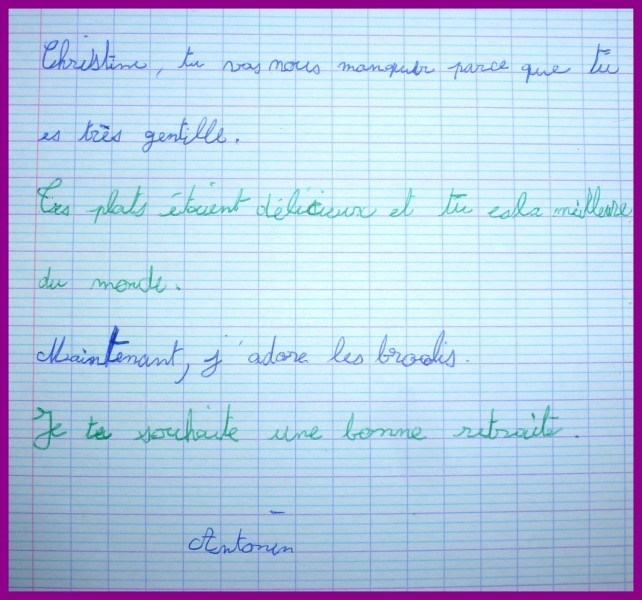 Christine, tu vas nous manquer parce que tu
es très gentille.
Tes plats étaient délicieux et tu es la meilleure
du monde.
Maintenant, j'adore les
Je te souhaite une bonne retraite.
Antonin